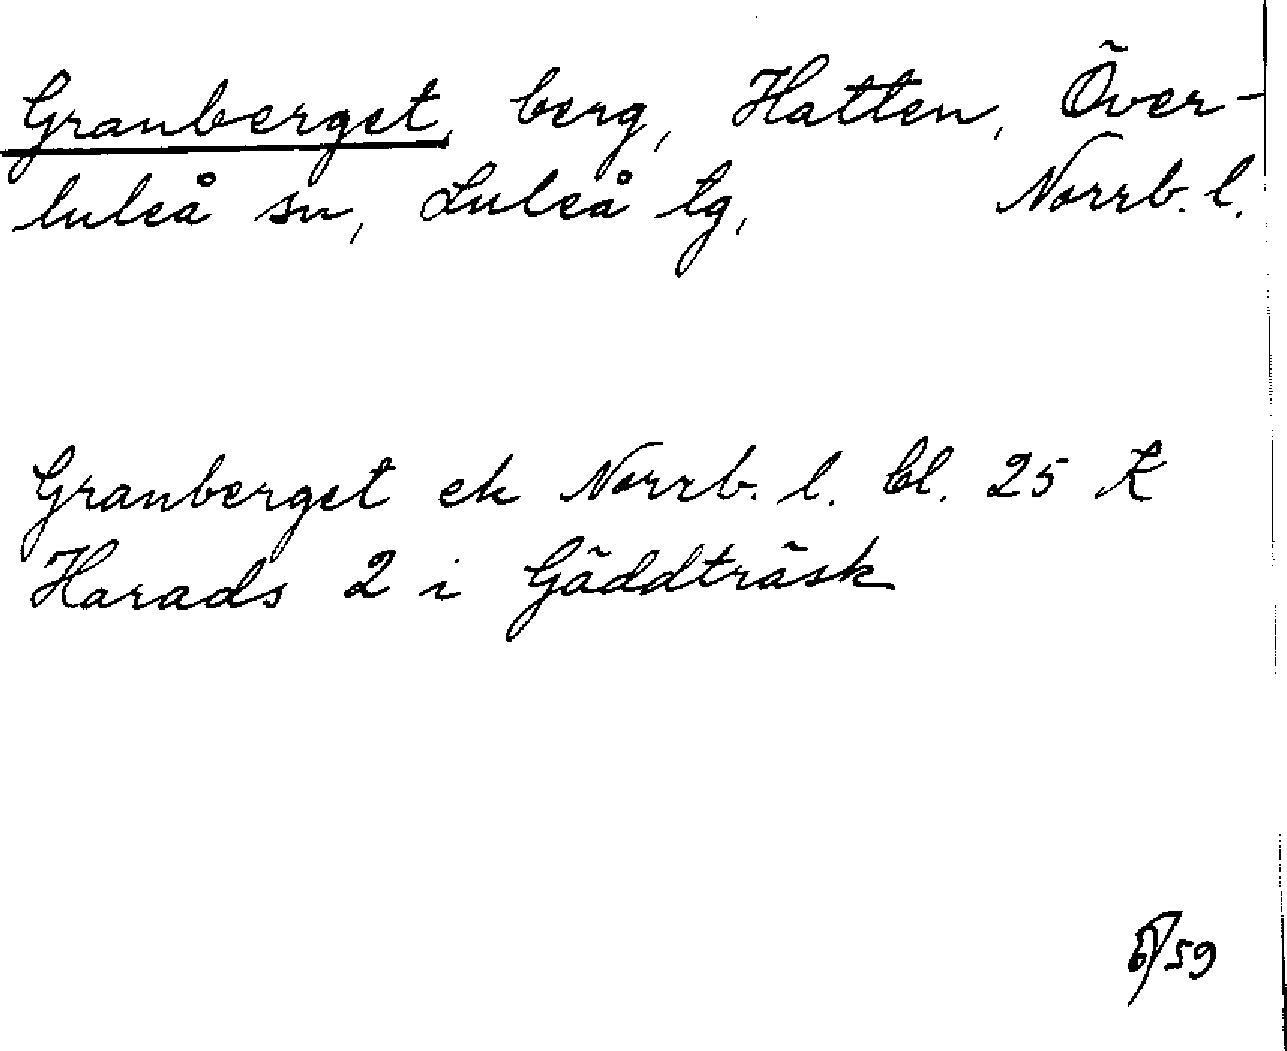 Granberget, berg, Hatten, Över-
luleå sn, Luleå tg, Norrb. l.
Granberget ek Norrb. l. bl. 25 K
Harads 2 i Gäddträsk
59